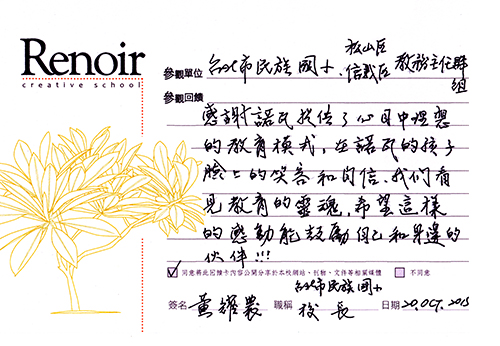 Renoir
creative school
參觀單位 台北市民族國小、松山區 信義區 教務主任群組
參觀回饋
感謝諾瓦提供了心目中理想
的教育模式，在諾瓦的孩子
臉上的笑容和自信、我們看
見教育的靈魂，希望這樣
的感動能鼓勵自己和身邊的
伙伴!!!
同意將此回饋卡內容公開分享於本校網站、刊物、文件等相關媒體 不同意
台北市民族國小
簽名 黃耀農 職稱 校長 日期 20.OCT.2015